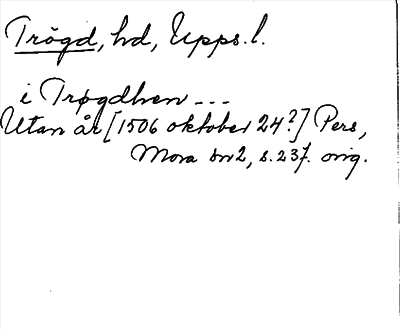 Trögd, hd, Upps. l.
i Trøgdhen ---
Utan år [1506 oktober 24?] Pers,
Mora bn 2, s. 237. orig.